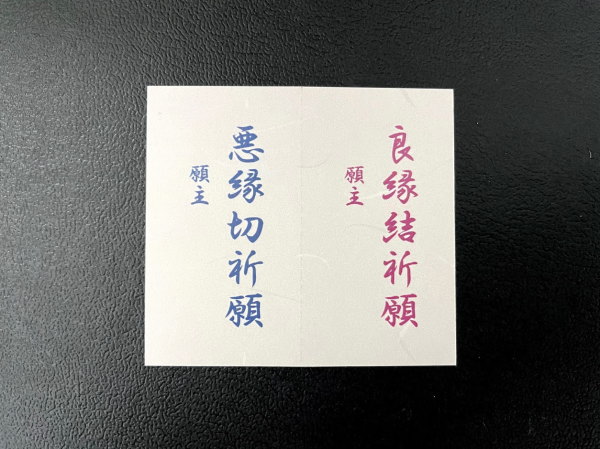 良縁結祈願
願主
悪縁切祈願
願主